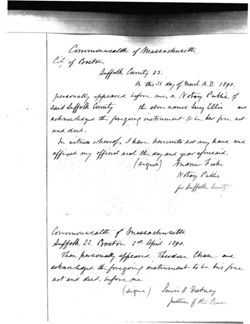 Commonwealth of Massachusetts
City of Boston
Suffolk County SS.
On this 31 day of March A.D. 1890,
personally appeared before me, a Notary Public of
said Suffolk County the above named Lucy Ellis and
acknowledged the foregoing instrument to be her free act
and deed.
In witness whereof, I have hereunto set my hand and
affixed my official seal the day and year aforesaid.
(signed) Andrew Fiske
Notary Public
for Suffolk County
Commonwealth of Massachusetts
Suffolk SS. Boston 5th April 1890.
Then personally appeared Theodore Chase and
acknowledged the foregoing instrument to be his free
act and deed, before me
(signed) Lewis S. Dabney
Justice of the Peace